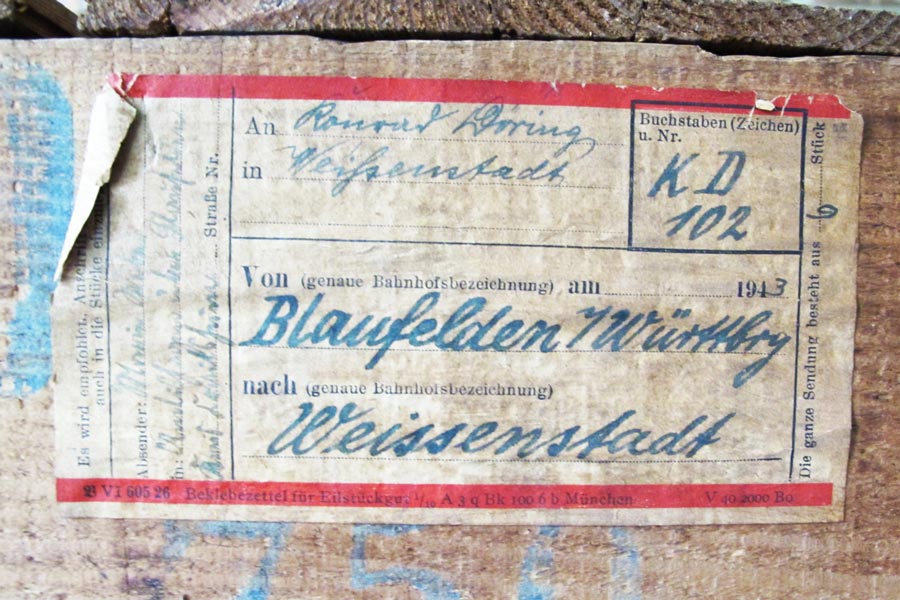 An Konrad Döring
in Weissenstadt
Buchstaben (Zeichen)
u. Nr.
K D
102
Von (genaue Bahnhofsbezeichnung) am 1943
Blaufelden / Württbrg
nach (genaue Bahnhofsbezeichnung)
Weissenstadt
Die ganze Sendung besteht aus 6 Stück
Es wird empfohlen, Anschri
auch in die Stücke einzu
Absender:
in:
Straße Nr.
VI 605 26 Beklebezettel für Eilstückgut 1/10 A 3 q Bk 100 6 b München V 40 2000 Bo
75